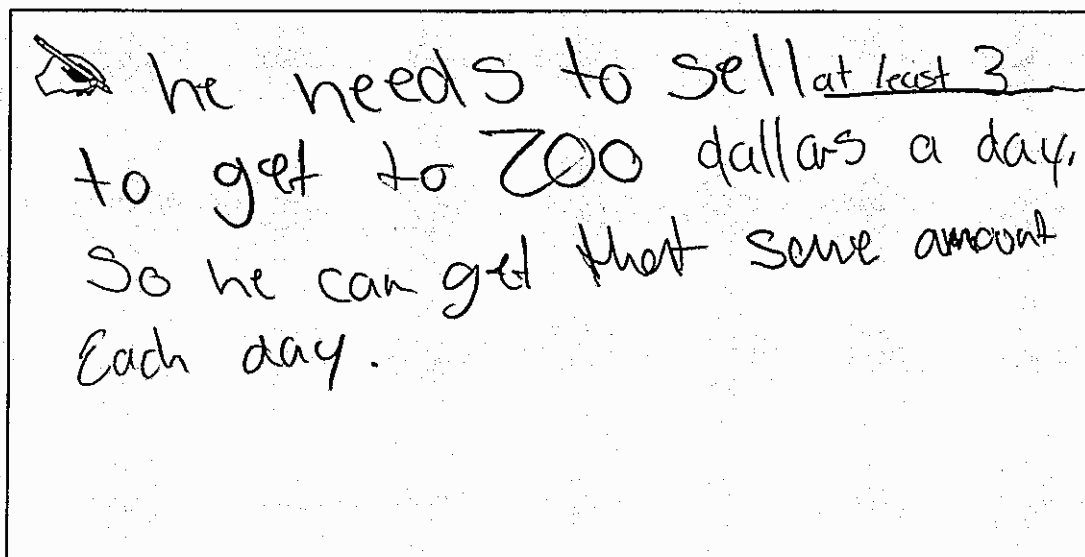 he needs to sell at least 3
to get to 200 dallars a day.
So he can get that same amount
Each day.